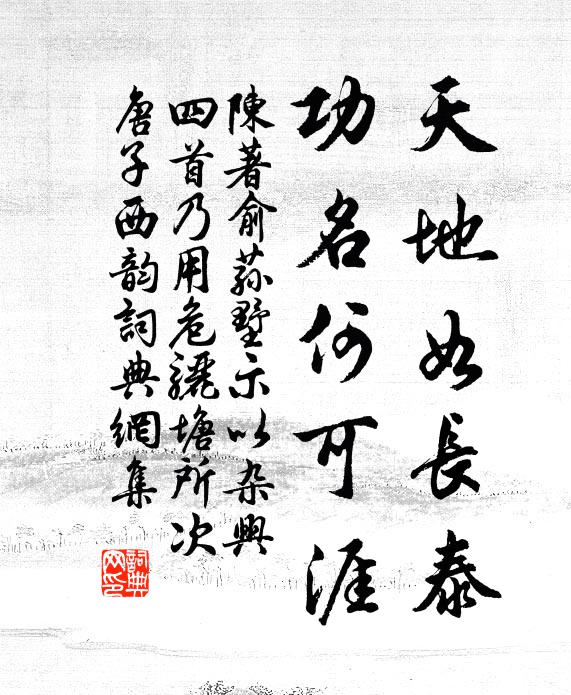 天地如長泰
功名何可涯
陳著俞荪墅示以杂興
四首乃用危驪塘所次
唐子西韵詞典網集
詞典
网印